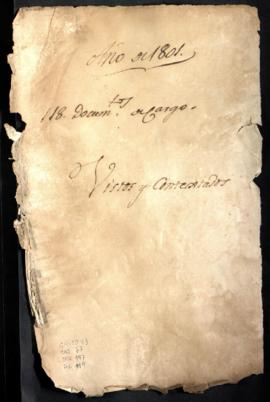 Año de 1801.
118. Docum.tos de Cargo.
Vistos y Contestados